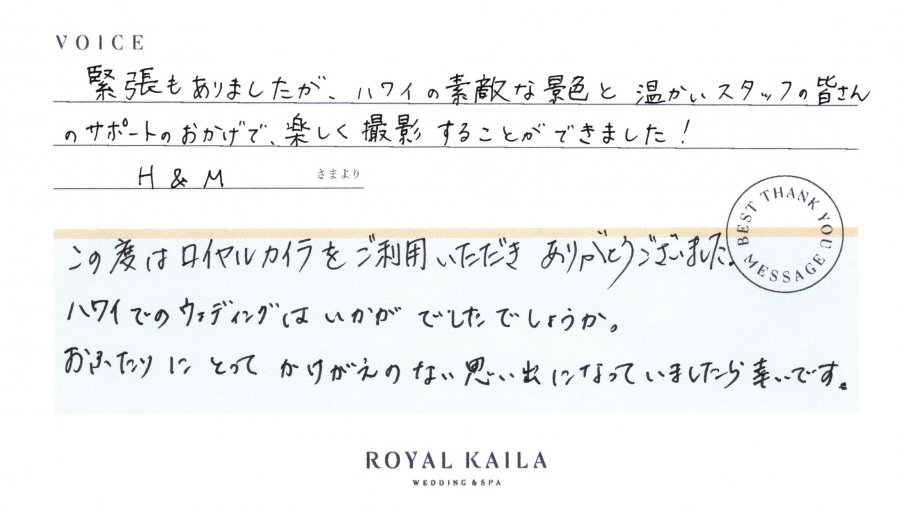 VOICE
緊張もありましたが、ハワイの素敵な景色と温かいスタッフの皆さん
のサポートのおかげで、楽しく撮影することができました!
H & M さまより
BEST THANK YOU MESSAGE
この度はロイヤルカイラをご利用いただきありがとうございました。
ハワイでのウェディングはいかがでしたでしょうか。
おふたりにとってかけがえのない思い出になっていましたら幸いです。
ROYAL KAILA
WEDDING & SPA